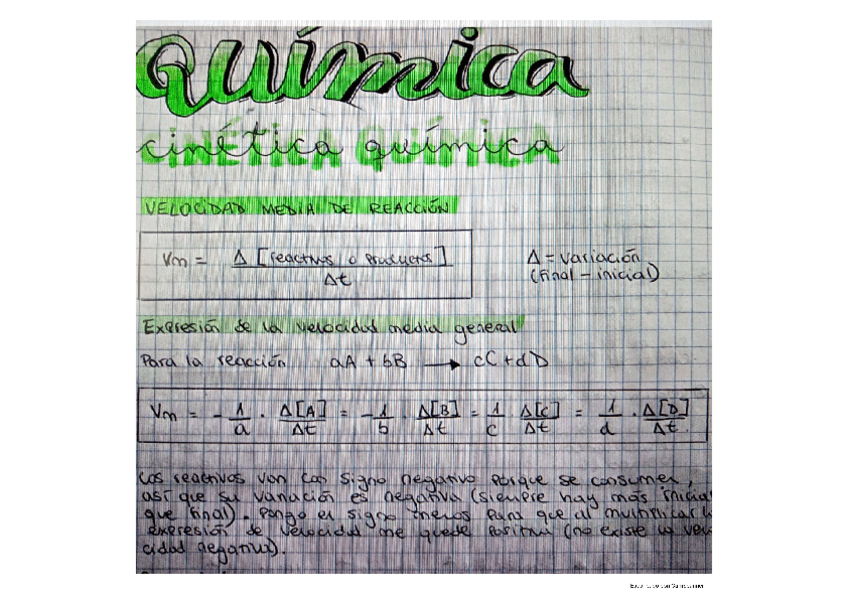 Química
cinética química
VELOCIDAD MEDIA DE REACCIÓN
Vm = Δ [reactivos o productos] / Δt
Δ = variación
(final - inicial)
Expresión de la velocidad media general
Para la reacción aA + bB → cC + dD
Vm = - 1/a · Δ[A]/Δt = - 1/b · Δ[B]/Δt = 1/c Δ[C]/Δt = 1/d · Δ[D]/Δt
Los reactivos van con signo negativo porque se consumen,
así que su variación es negativa (siempre hay más inicial
que final). Pongo el signo menos para que al multiplicar
expresión de velocidad me quede positiva (no existe la velo
cidad negativa).